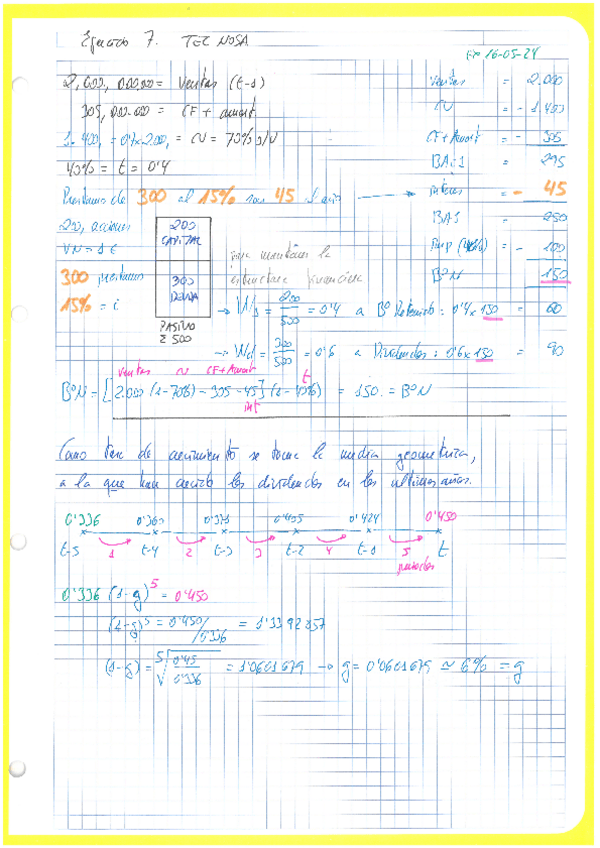 Ejercicio 7. TECNOSA
EP 16-05-24
2,000,000.000 = Ventas (t-1)
305,000.000 = CF + amort.
1.400, = 0'7x2.000, = CV = 70% s/V
40% = t = 0'4
Préstamo de 300 al 15% son 45 al año
200, acciones
VN = 1 €
300 préstamo
15% = i
200
CAPITAL
300
DEUDA
PASIVO
Σ 500
Ventas = 2.000
CV = - 1.400
CF + Amort = - 305
BAIT = 295
intereses = - 45
BAI = 250
Imp (40%) = - 100
BºN 150
mantiene la
estructura financiera
→ Ws = 200/500 = 0'4 a Bº Retenido: 0'4x150 = 60
→ Wd = 300/500 = 0'6 a Dividendos: 0'6x150 = 90
ventas CF+Amort t
BºN = [2.000 (1-70%) - 305 - 45] (1-40%) = 150. = BºN
int
Como tasa de crecimiento se toma la media geométrica,
a la que han crecido los dividendos en los últimos años.
0'336 0'360 0'405 0'424 0'450
t-5 1 t-4 2 t-3 3 t-2 4 t-1 5 t
periodos
0'336 (1-g)^5 = 0'450
(1-g)^5 = 0'450/0'336 = 1'3392857
(1-g) = ⁵√0'45/0'336 = 1'0601679 → g = 0'0601679 ≃ 6% = g